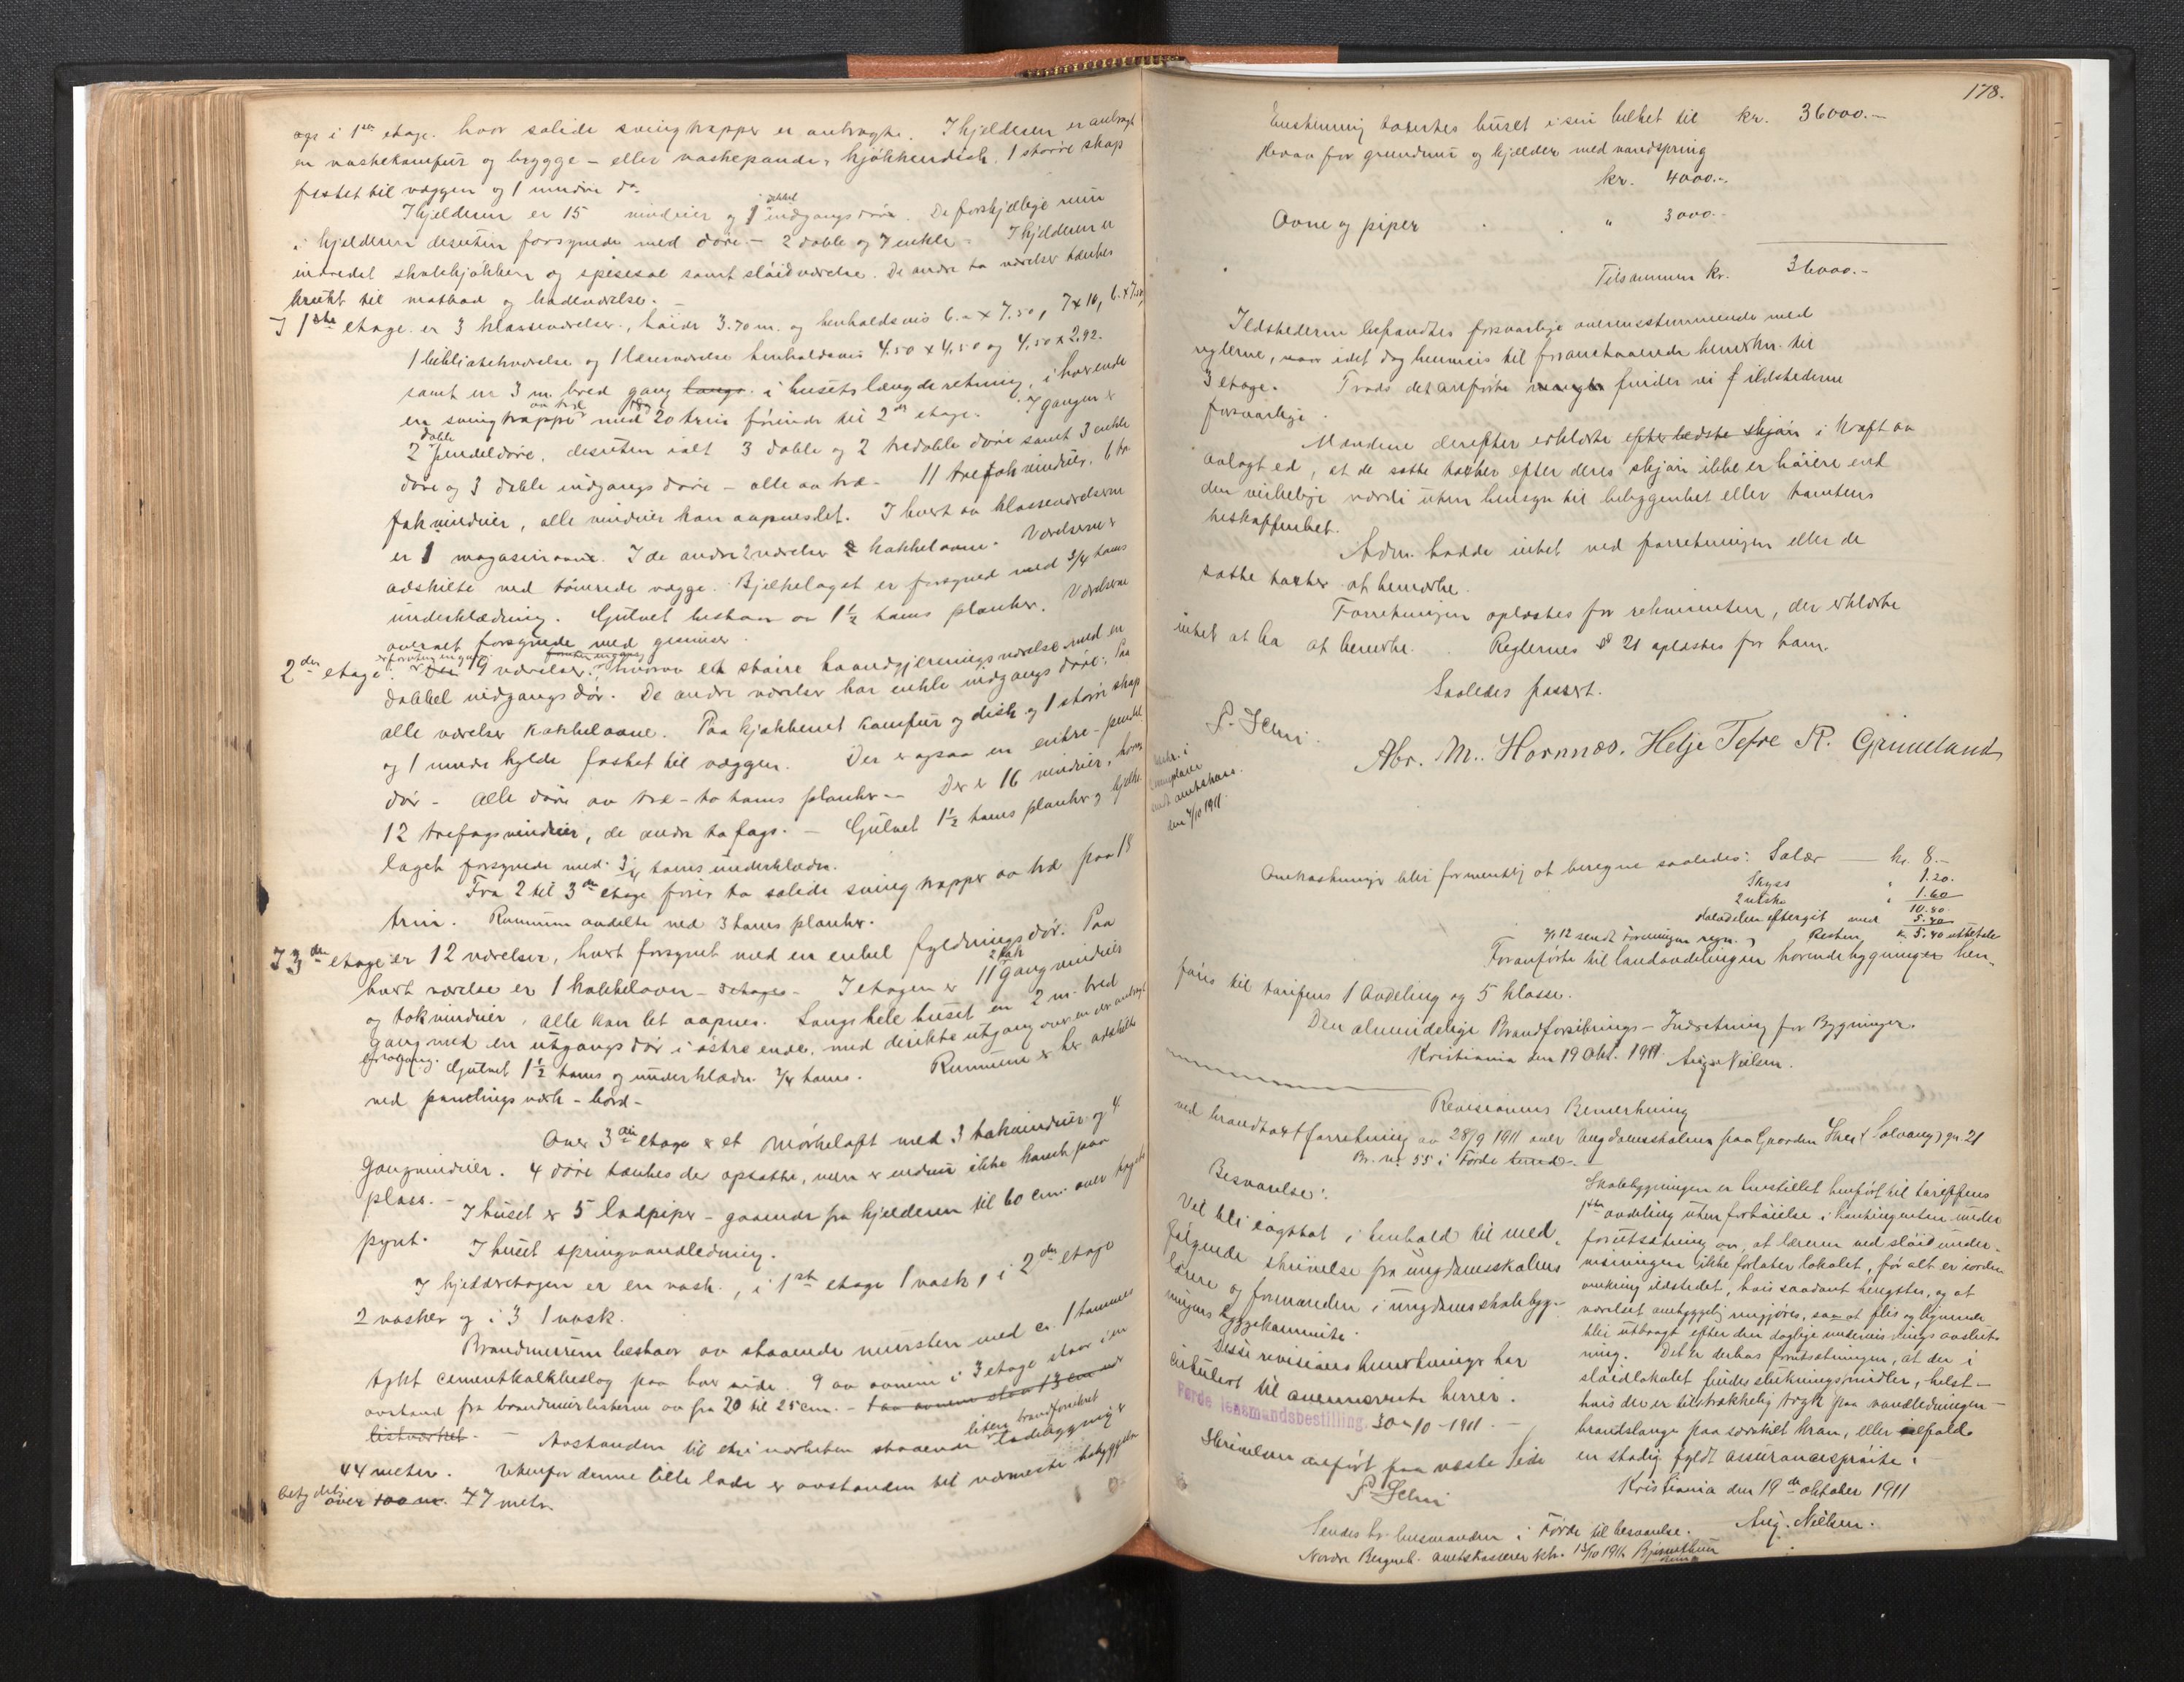 ogs i 1ste etage. hvor solide svingtrapper er anbragte. I kjelderen er anbragt
en vaskekomfur og brygge- eller vaskepande, kjøkkendisk, 1 større skap
festet til væggen og 1 mindre do.
I kjelderen er 15 vinduer og 1 dobbel indgangsdør. De forskjellige rum
i kjelderen desuten forsynede med døre - 2 doble og 7 enkle. I kjelderen er
indredet skolekjøkken og spisesal samt sløidværelse. De andre to værelser tænkes
brukt til matbod og badeværelse. -
I 1ste etage er 3 klasseværelser, høide 3.70 m. og henholdsvis 6.- x 7.50, 7 x 10, 6. x 7.50,
1 bibliotekværelse og 1 læreværelse henholdsvis 4.50 x 4.50 og 4.50 x 2.92.
samt en 3 m. bred gang langs i husets længderetning, i hver ende
en svingtrappe av træ med 20 trin førende til 2den etage. I gangen er
2 doble pendeldøre, desuten ialt 3 doble og 2 tredoble døre samt 3 enkle
døre og 3 doble indgangsdøre - alle av træ - 11 trefakvinduer, 6 to
fakvinduer, alle vinduer kan aapnes let. I hvert av klasseværelserne
er 1 magasinovn. I de andre 2 værelser 2 kakkelovne. Værelserne er
adskilte med tømrede vægge. Bjelkelaget er forsyned med 3/4 toms
underklædning. Gulvet bestaar av 1½ toms planker. Værelserne
overalt forsynede med gesimser.
2den etage. er foruten en gang 9 værelser, foruten en gang hvorav et større haandgjerningsværelse med en
dobbel indgangsdør. De andre værelser har enkle indgangsdøre. Paa
alle værelser kakkelovne. Paa kjøkkenet komfur og disk og 1 større skap
og 1 mindre hylde festet til væggen. Der er ogsaa en entre-pendel
dør - Alle døre av træ - to toms planker - Der er 16 vinduer, hvorav
12 trefagsvinduer, de andre to fags. - Gulvet 1½ toms planker og bjelke
laget forsynede med 3/4 toms underklædn.
Fra 2 til 3die etage fører to solide svingtrapper av træ paa 18
trin. Rummene avdelte med 3 toms planker.
I 3die etage er 12 værelser, hvert forsynet med en enkel fyldningsdør. Paa
hvert værelse er 1 kakkelovn - I etagen er 11 2 fak gangvinduer
og takvinduer, alle kan let aapnes. Langs hele huset en 2 m. bred
gang med en utgangsdør i østre ende, med direkte utgang over en der anbragt
Gulvet 1½ toms og underklædn. 3/4 toms. Rummene er her adskilte
med panelingsverk - bord -
Over 3die etage er et mørkeloft med 3 takvinduer og 4
gangvinduer. 4 døre tænkes der opsatte, men er endnu ikke komt paa
plass. -
I huset er 5 lodpiper - gaaende fra kjelderen til 60 cm. over
I huset springvandledning.
I kjelderetagen er en vask, i 1ste etage 1 vask, i 2den etage
2 vasker og i 3 1 vask.
Brandmurene bestaar av staaende mursten med ca. 1 tommes
tykt cementkalkbeslag paa hver side. 9 av ovnene i 3 etage staar i en
avstand fra brandmurlisterne av fra 20 til 25 cm. - to av ovnene staa 13 cm under
listverket. - Avstanden til et i nærheten staaende liten brandforsikret ladebygning er
44 meter. Utenfor denne lille lade er avstanden til nærmeste bebyggelse
betydelig over 100 m. 47 meter.
178.
Enstemmig taxertes huset i sin helhet til kr. 36000.-
Herav for grundmur og kjælder med vandspring
kr. 4000.-
Ovne og piper " 3000.-
Tilsammen kr. 36000.-
Ildstederne befandtes forsvarlige overensstemmende med
reglerne, naar idet dog henvises til foranstaaende bemerkn. til
3 etage. Trods det anførte mangler finder vi ildstederne
forsvarlige.
Mændene derefter erklærte efter bedste skjøn i kraft av
avlagt ed, at de satte takster efter deres skjøn ikke er høiere end
den virkelige værdi uten hensyn til bebyggenhet eller tomtens
beskaffenhet.
Adm. hadde intet ved forretningen eller de
satte takster at bemerke.
Forretningen oplæstes for rekvirenten, der erklærte
intet at ha at bemerke. Reglernes § 21 oplæstes for ham.
Saaledes passert.
Abr. M. Hornnæs. Helje Tefre R. Grimeland
Utskr. i
amtskass.
den 4/10 1911.
Omkostninger blir formentlig at beregne saaledes: Salær - kr. 8.-
Skyss " 1.20.
2 utskr. " 1.60
10.80
Halvdelen eftergit med 5.40
2/1 12 sendt foreningen regn. Resten k. 5.40 utbetale
Foranførte til landavdelingen hørende bygninger hen-
føres til tarifens 1 Avdeling og 5 klasse.
Den almindelige Brandforsikrings-Indretning for Bygninger.
Kristiania den 19 Okt. 1911. Aug. Nielsen.
Revisionens Bemerkning
ved brandtaxtforretning av 28/9 1911 over ungdomsskolen paa Gaarden (Solvang) gn. 21
Br. no 55 i Førde
Besvarelse:
Vil bli iagttat i henhold til med-
følgende skrivelse fra ungdomsskolens
lærer og formanden i ungdomsskolebyg-
ningens byggekomite.
Disse revisionsbemerkninger har
cirkulert til ovennævnte herrer.
Førde lensmandsbestilling. 30-10-1911. -
Skrivelsen anført paa næste side
Skolebygningen er henstillet henført til tariffens
1ste avdeling uten forhøielse i kontingenten under
forutsætning av, at læreren ved sløidunder-
visningen ikke forlater lokalet, før alt er i orden
omkring ildstedet, hvis saadant benyttes, og at
værelset omhyggelig rengjøres, samt at flis og lignende
blir utbragt efter den daglige undervisnings avslut-
ning. Det er derhos forutsætningen, at der i
sløidlokalet findes slukningsmidler, helst -
hvis der er tilstrækkelig tryk paa vandledningen -
brandslange paa særskilt kran, eller ialfald
en stadig fyldt assurancesprøite.
Kristiania den 19de oktober 1911
Aug. Nielsen.
Sendes hr. lensmanden i Førde til besvarelse.
Nordre Bergenh. amtskasserer ktr. 1911.